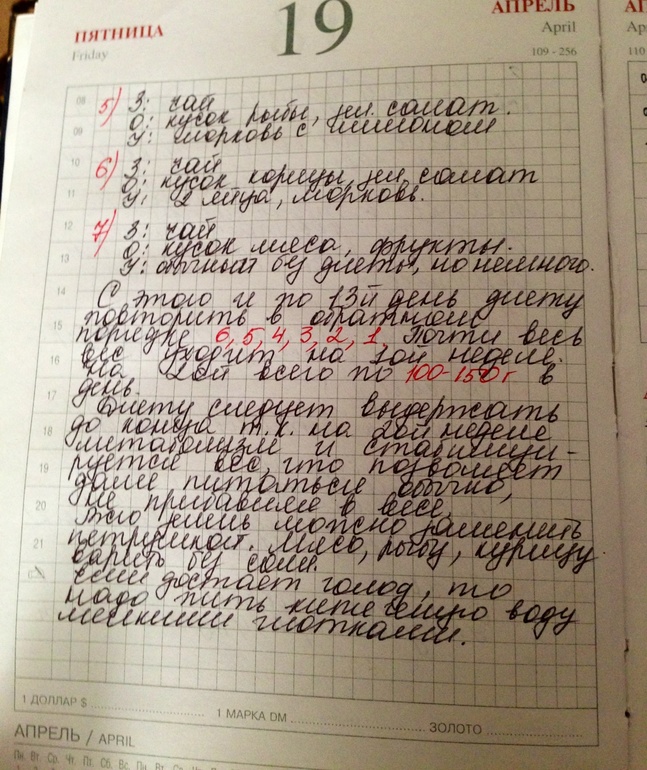 ПЯТНИЦА
Friday
19
АПРЕЛЬ
April
109 - 256
08
09
10
11
12
13
14
15
16
17
18
19
20
21
5) З: чай
О: кусок рыбы, зел. салат.
У: морковь с лимоном
6) З: чай
О: кусок корицы, зел. салат
У: 2 яйца, морковь.
7) З: чай
О: кусок мяса, фрукты.
У: обычный без диеты, но немного.
С этого и по 13й день диету
повторить в обратном
порядке 6, 5, 4, 3, 2, 1. Почти весь
вес уходит на 1ой неделе.
На 2ой всего по 100-150г в
день.
Диету следует выдержать
до конца т.к. на 2ой неделе
метаболизм и стабилизи-
руется вес, что позволяет
далее питаться обычно,
не прибавляя в весе.
Зелень можно заменить
петрушкой. Мясо, рыбу, курицу
варить без соли.
Если достает голод, то
надо пить кипяченую воду
мелкими глотками.
1 ДОЛЛАР $
1 МАРКА DM
ЗОЛОТО
АПРЕЛЬ / APRIL
Пн. Вт. Ср. Чт. Пт. Сб. Вс. Пн. Вт. Ср. Чт.
АП
110